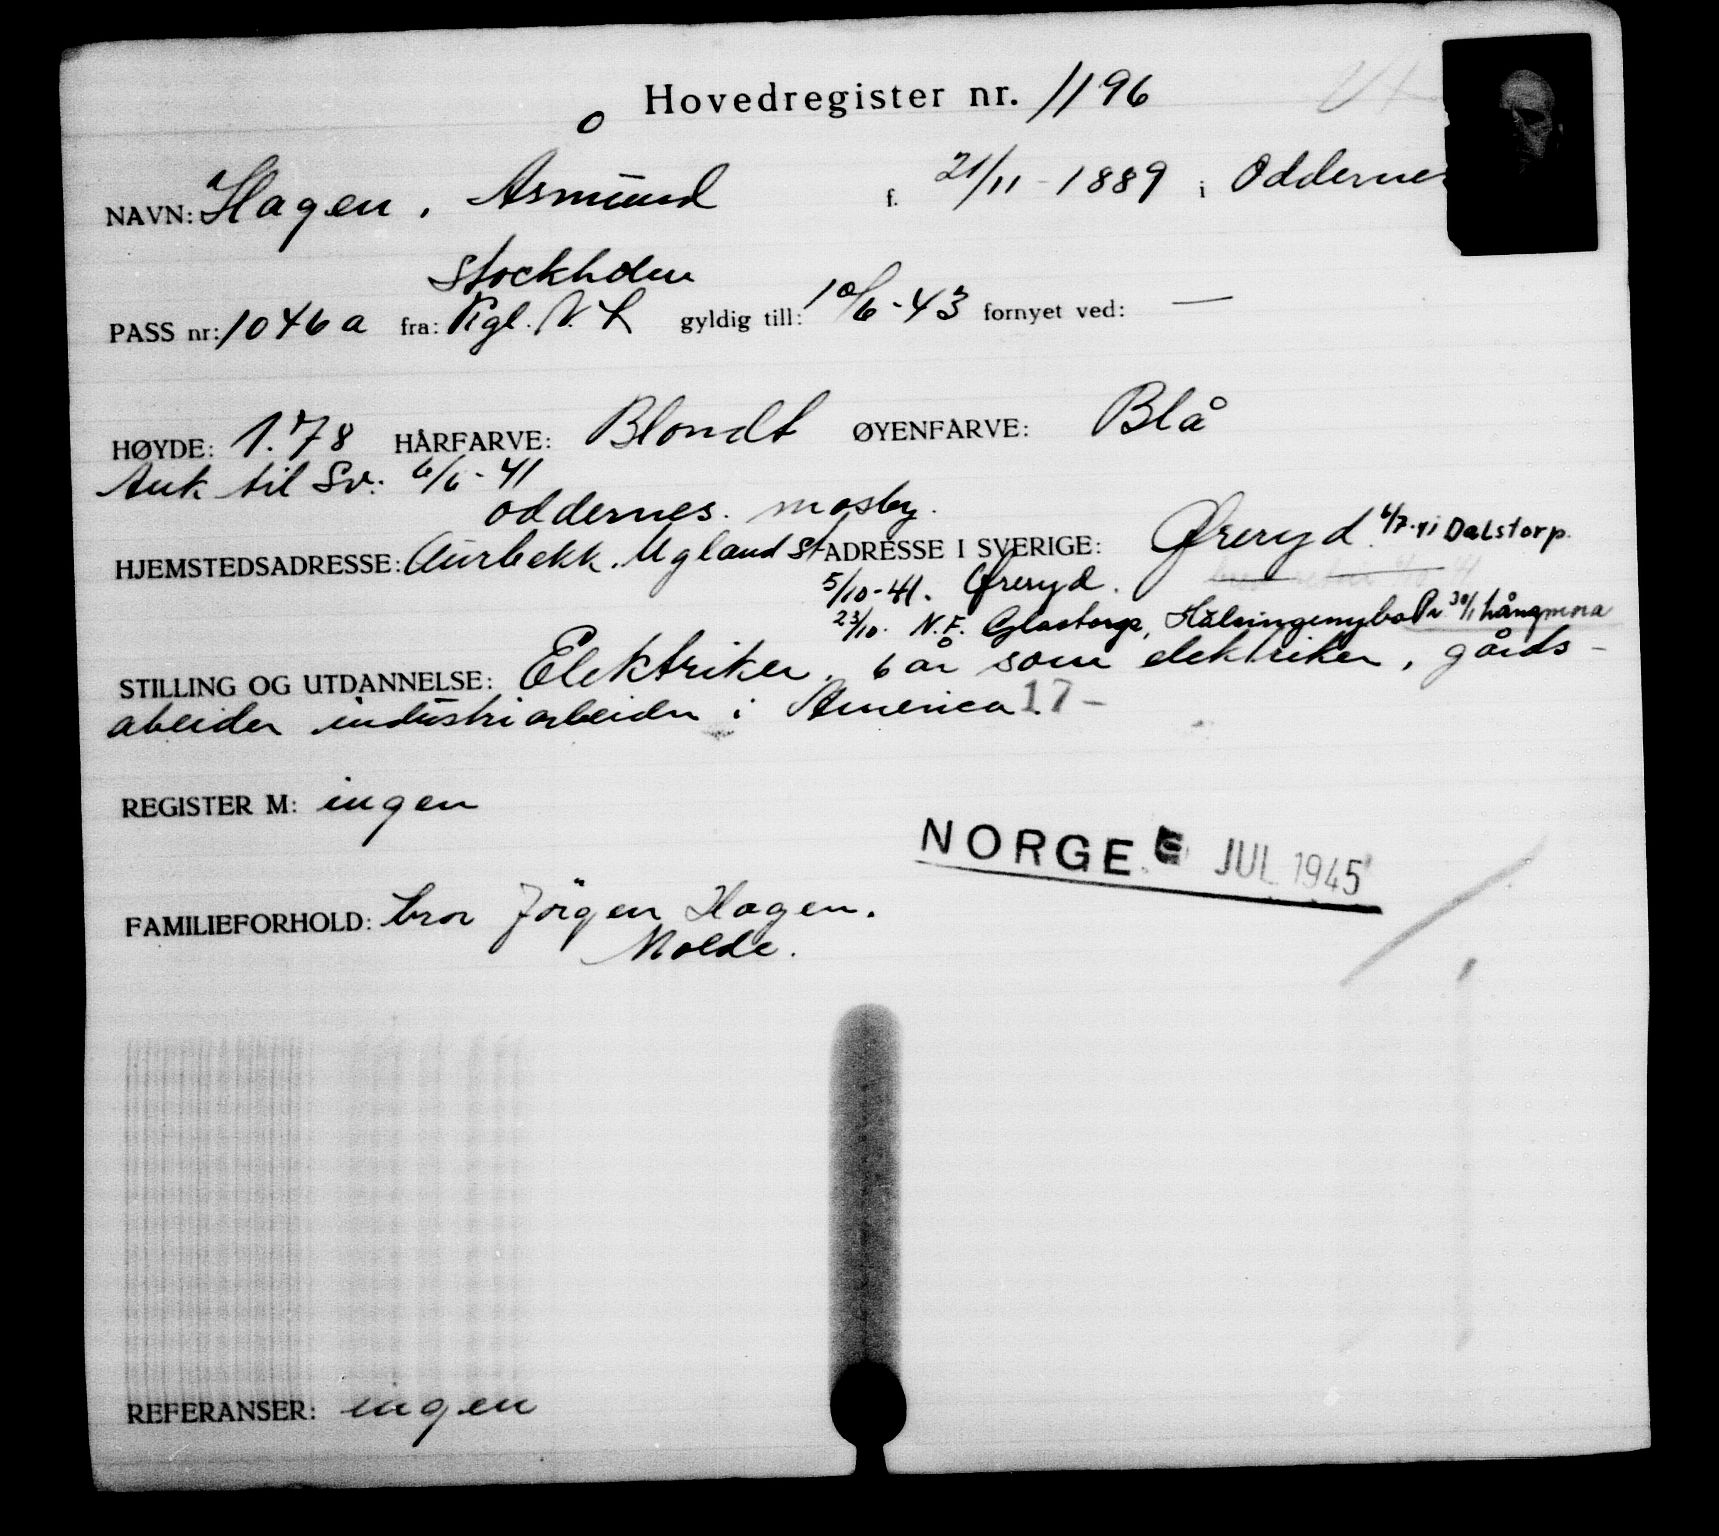 Hovedregister nr. 1196
NAVN: Hagen, Åsmund f. 21/11-1889 i Oddernes
Stockholm
PASS nr: 1046a fra: Kgl. N. L gyldig till: 10/6-43 fornyet ved: —
HØYDE: 1.78 HÅRFARVE: Blondt ØYENFARVE: Blå
Ank til Sv: 6/6-41
Oddernes. Mosby.
HJEMSTEDSADRESSE: Aurbekk. Ugland st ADRESSE I SVERIGE: Øreryd 6/7-41 Dalstorp.
5/10-41. Øreryd.
23/10. N.F. Hälsingmybo 30/1 Långmora
STILLING OG UTDANNELSE: Elektriker, 6 år som elektriker, gårds-
abeider industriarbeider i America 17-
REGISTER M: ingen
NORGE JUL 1945
FAMILIEFORHOLD: bror Jörgen Hagen.
Molde.
REFERANSER: ingen